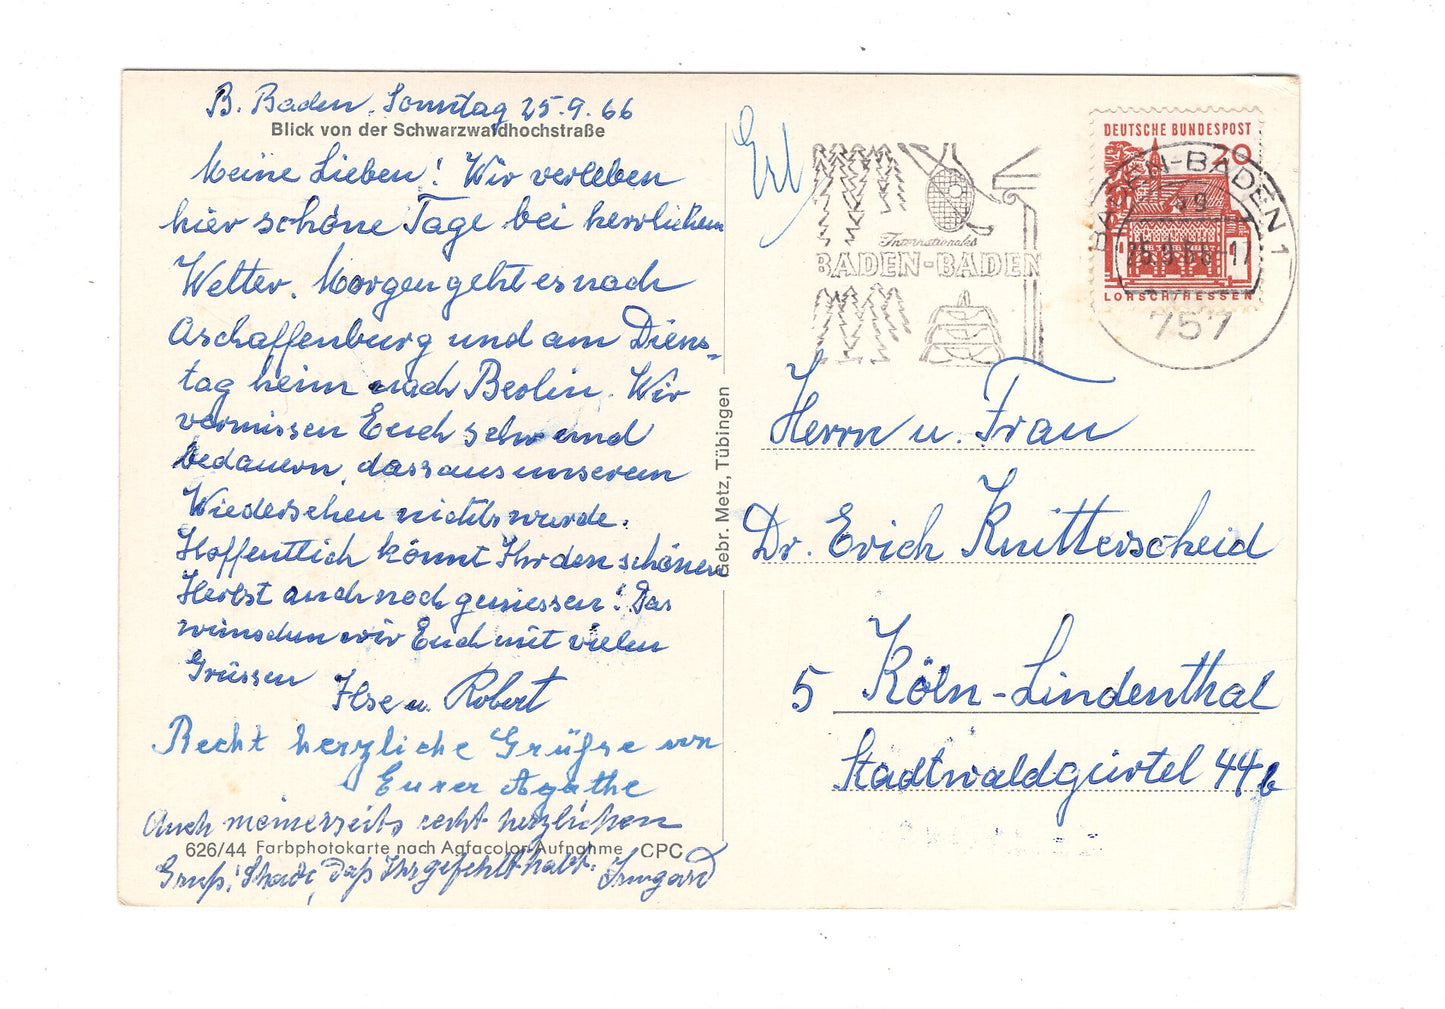 B. Baden. Sonntag 25.9.66
Blick von der Schwarzwaldhochstraße
Meine Lieben! Wir verleben
hier schöne Tage bei herrlichem
Wetter. Morgen geht es nach
Aschaffenburg und am Diens-
tag heim nach Berlin. Wir
vermissen Euch sehr und
bedauern, dass aus unserem
Wiedersehen nichts wurde.
Hoffentlich könnt Ihr den schönen
Herbst auch noch geniessen! Das
wünschen wir Euch mit vielen
Grüssen
Ilse u. Robert
Recht herzliche Grüße von
Eurer Agathe
Auch meinerseits recht herzlichen
626/44 Farbphotokarte nach Agfacolor-Aufnahme CPC
Gruß! Schade, daß Ihr gefehlt habt. Irmgard
Gebr. Metz, Tübingen
Internationales
BADEN-BADEN
DEUTSCHE BUNDESPOST
20
LORSCH/HESSEN
BADEN-BADEN 1
25.9.66-17
757
Herrn u. Frau
Dr. Erich Knitterscheid
5 Köln-Lindenthal
Stadtwaldgürtel 44b